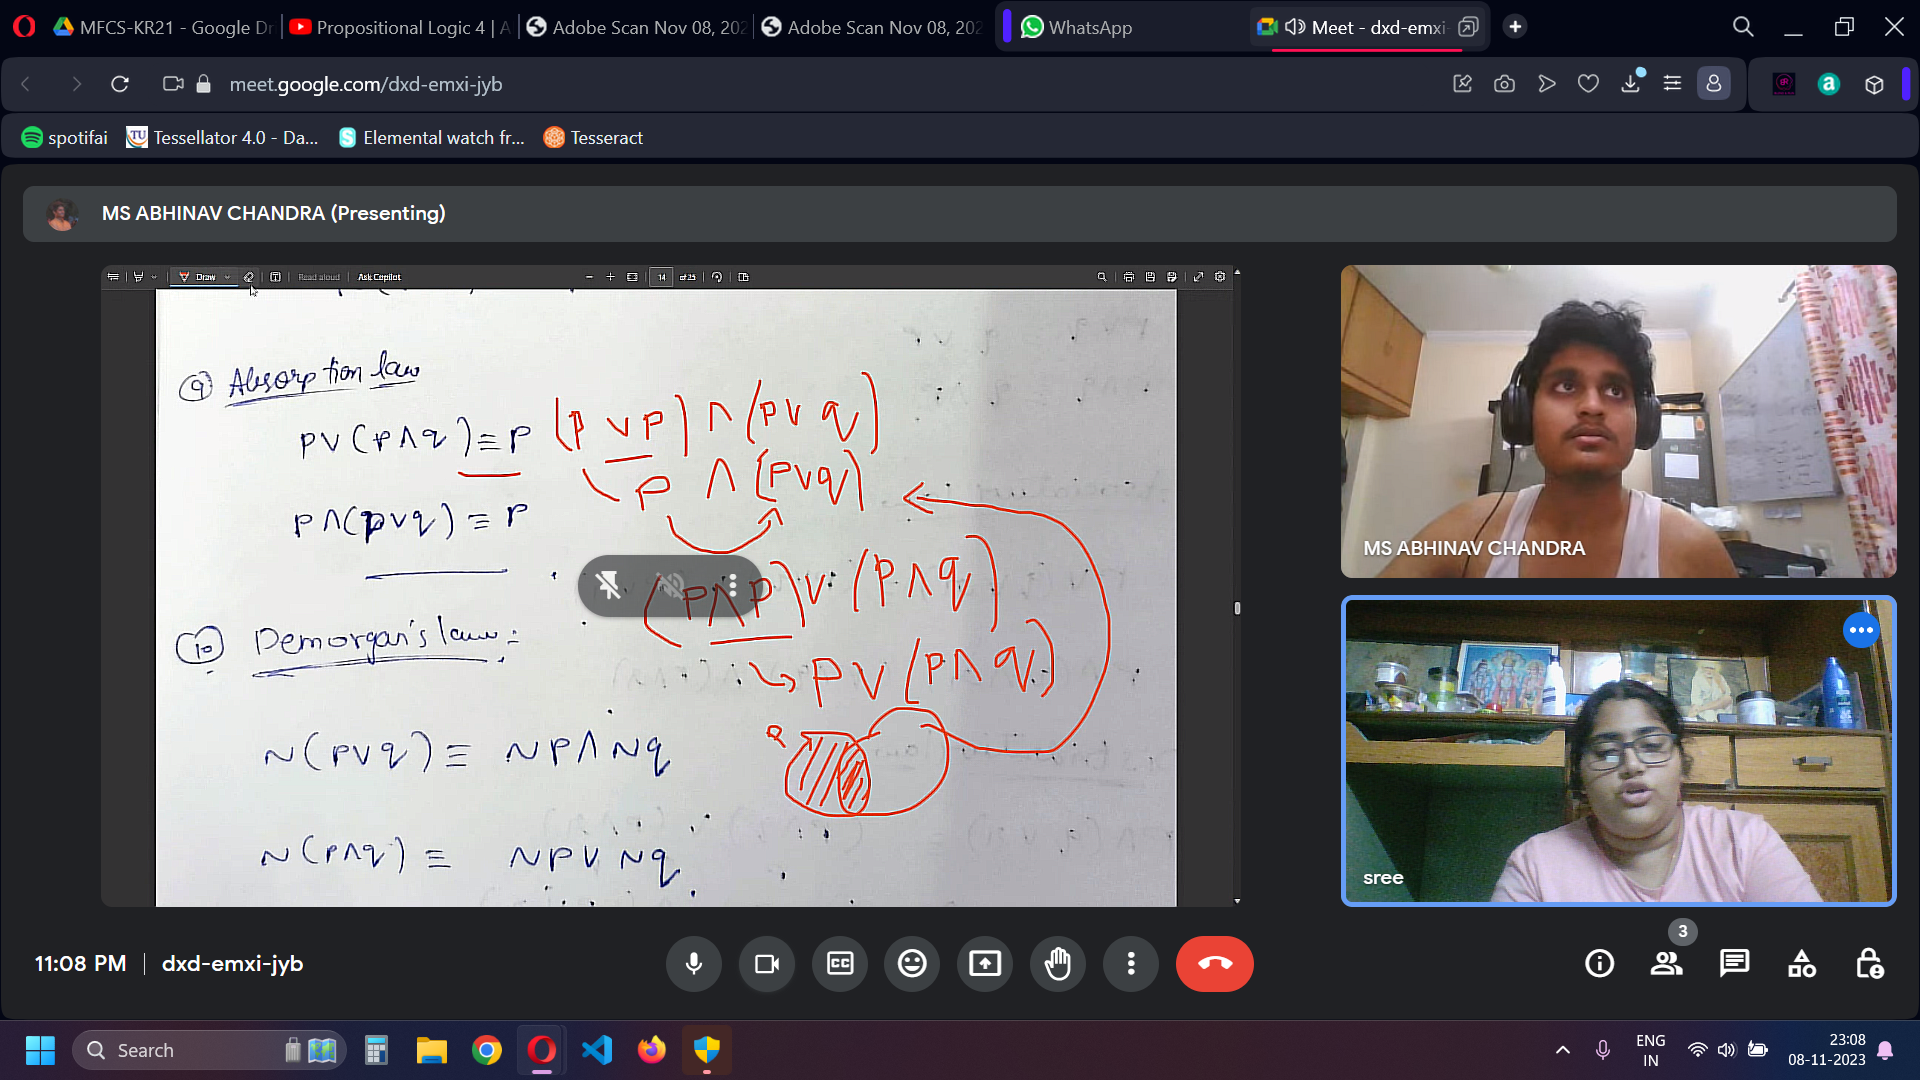 MFCS-KR21 - Google Dr
Propositional Logic 4 | A
Adobe Scan Nov 08, 202
Adobe Scan Nov 08, 202
WhatsApp
Meet - dxd-emxi-
meet.google.com/dxd-emxi-jyb
spotifai
Tessellator 4.0 - Da...
Elemental watch fr...
Tesseract
MS ABHINAV CHANDRA (Presenting)
Draw
Read aloud
Ask Copilot
14
of 25
9 Absorption law
p∨(p∧q)≡p
(p∨p)∧(p∨q)
p∧(p∨q)
p∧(p∨q)≡p
(p∧p)∨(p∧q)
p∨(p∧q)
10 Demorgan's law:
~(p∨q)≡ ~p∧~q
~(p∧q)≡ ~p∨~q
MS ABHINAV CHANDRA
sree
11:08 PM | dxd-emxi-jyb
CC
3
Search
ENG
IN
23:08
08-11-2023